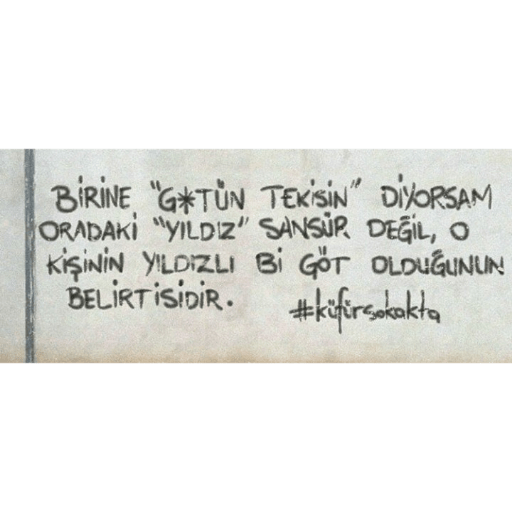 BİRİNE "G*TÜN TEKİSİN" DİYORSAM
ORADAKİ "YILDIZ" SANSÜR DEĞİL, O
KİŞİNİN YILDIZLI Bİ GÖT OLDUĞUNUN
BELİRTİSİDİR.
#küfürsokakta